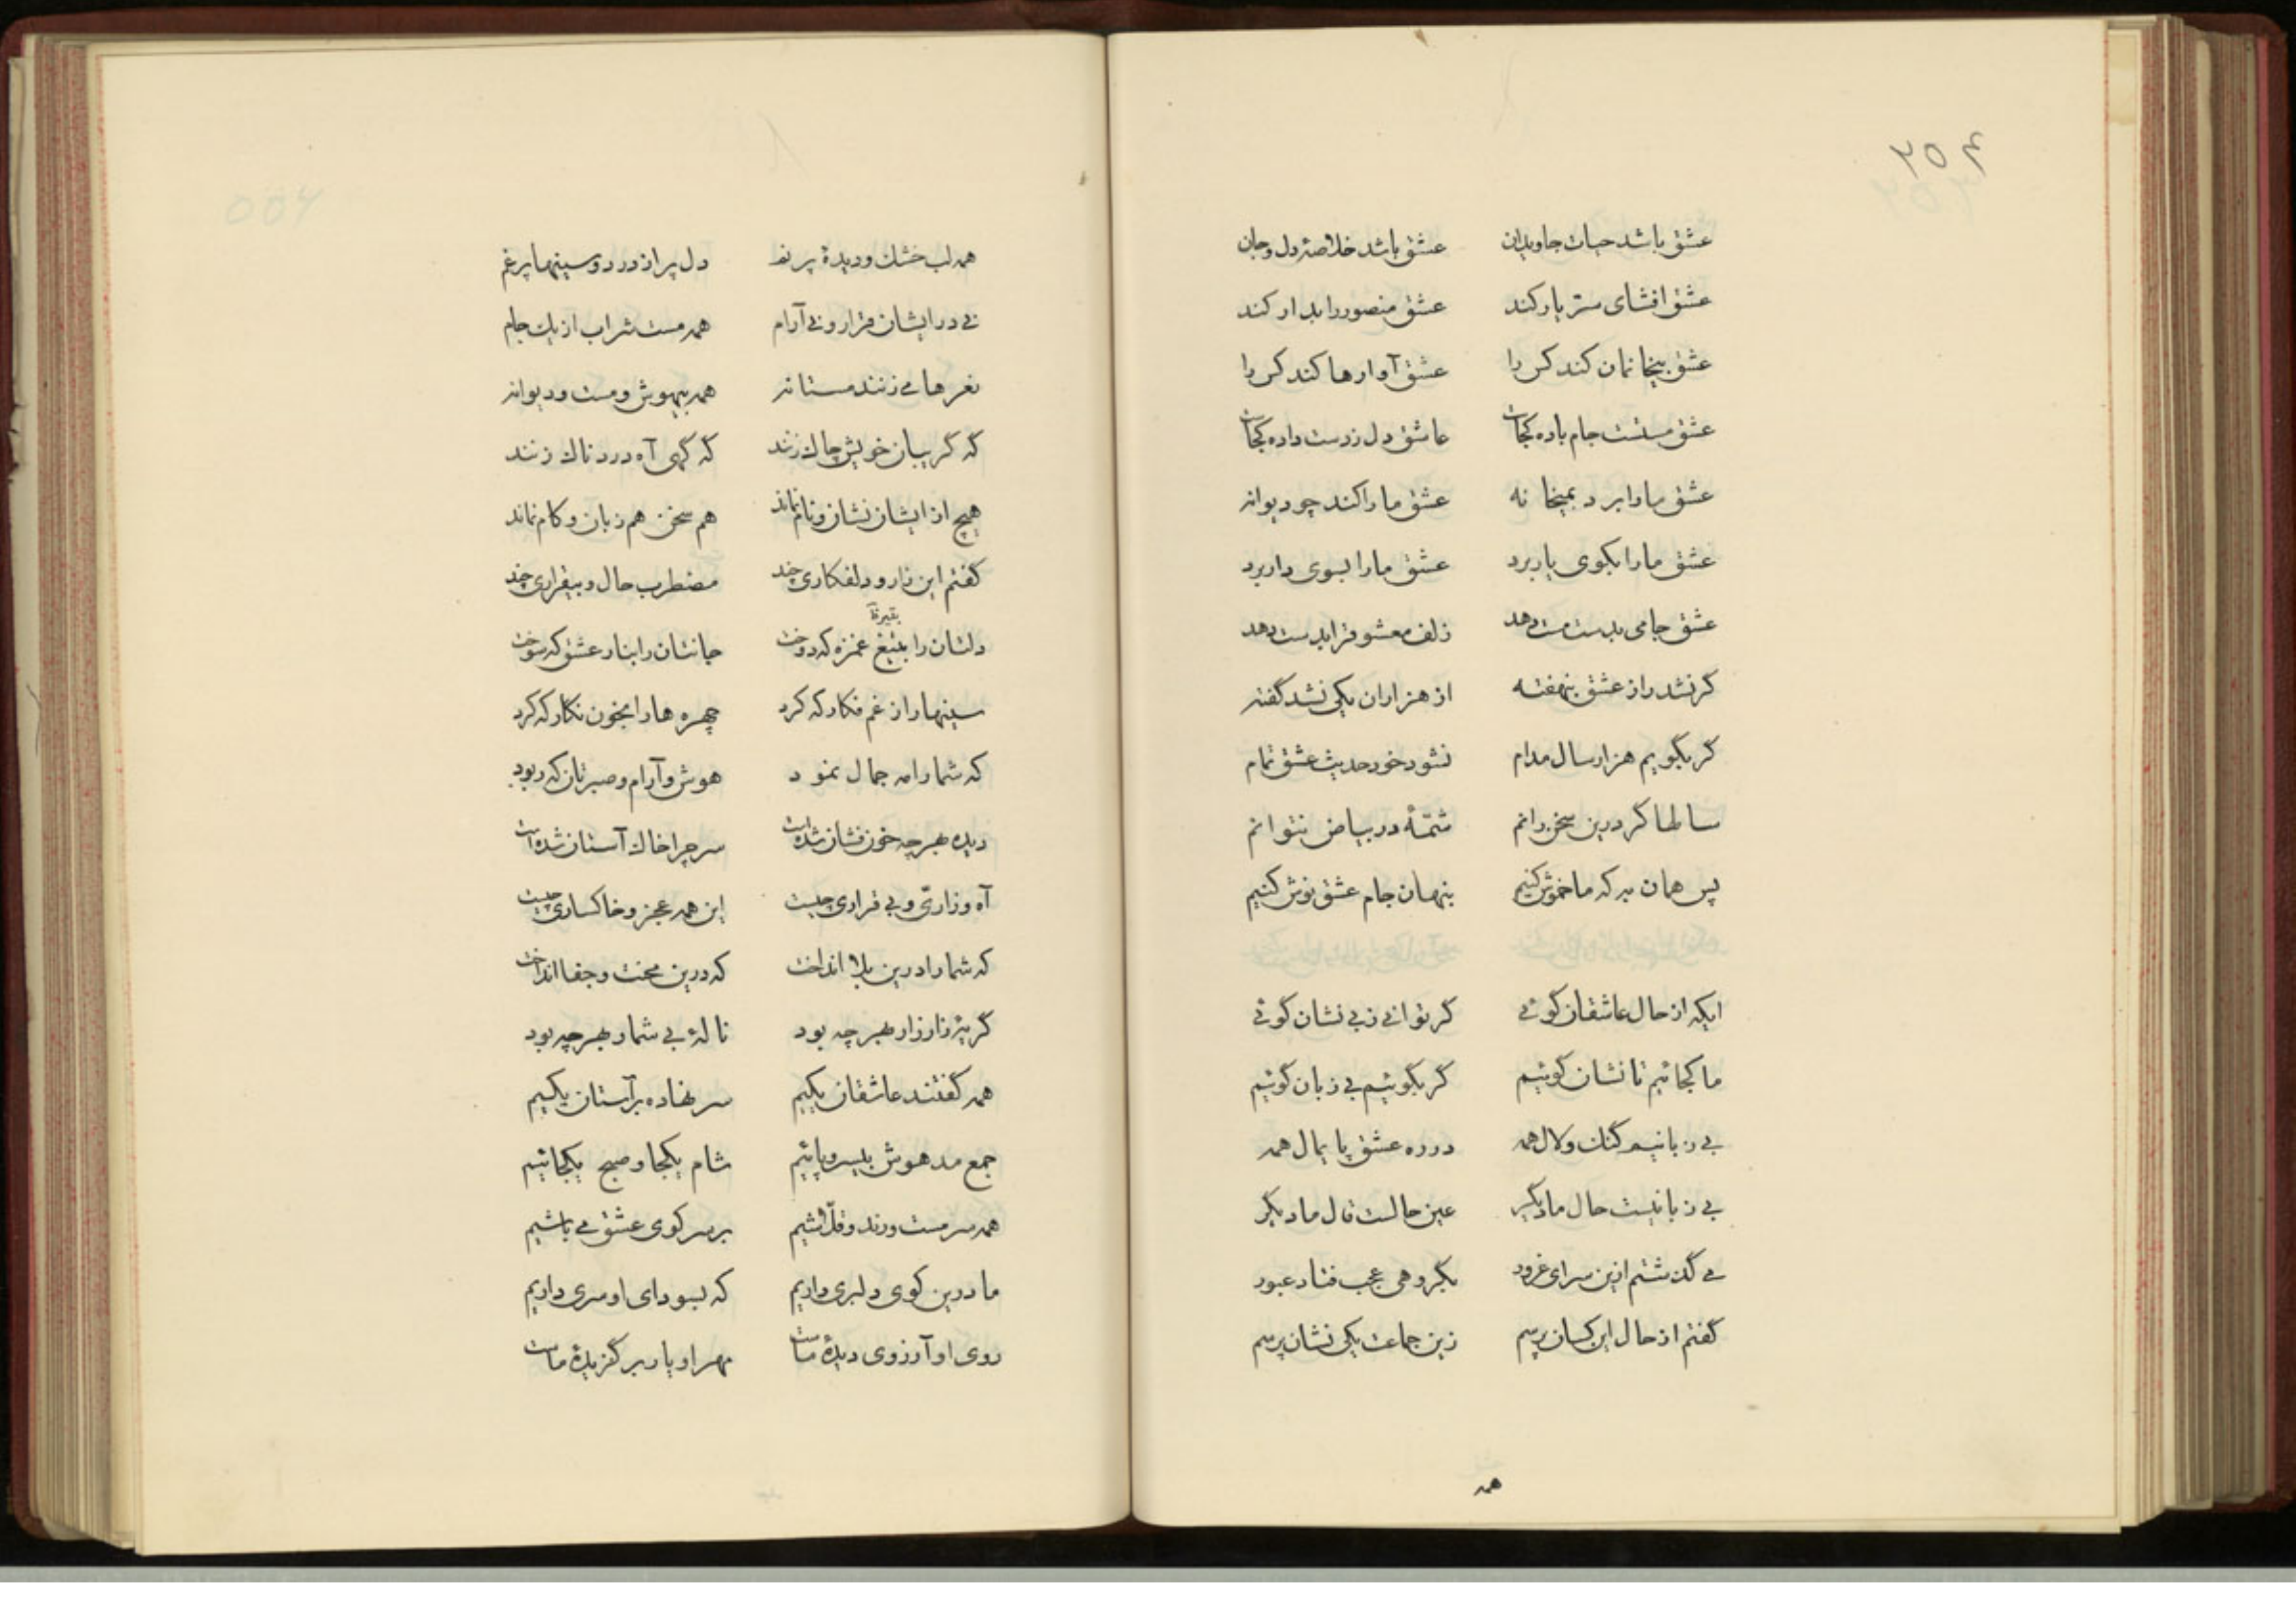 ۲۵۴
عشق باشد حیات جاویدان عشق باشد خلاصهٔ دل و جان
عشق افشای ستر یار کند عشق منصور را بدار کند
عشق بیخانمان کند کس را عشق آوارها کند کس را
عشق مستست جام باده کجاست عاشق دل زدست داده کجاست
عشق مارا برد بمیخانه عشق مارا کند چو دیوانه
عشق مارا بکوی یار برد عشق مارا بسوی دار برد
عشق جامی بدست مست دهد زلف معشوق را بدست دهد
گر نشد راز عشق بنهفته از هزاران یکی نشد گفته
گر بگویم هزار سال مدام نشود خود حدیث عشق تمام
سالها گر درین سخن رانم شمّهٔ در بیاض نتوانم
پس همان به که ما خموش کنیم پنهان جام عشق نوش کنیم
ایکه از حال عاشقان گوئی گر توانی ز بی نشان گوئی
ما کجائیم تا نشان گوئیم گر بگوئیم بی زبان گوئیم
بی زبانیم گنك و لال همه در ره عشق پایمال همه
بی زبانیست حال ما دیگر عین حالست قال ما دیگر
می گذشتم ازین سرای غرور بگروهی عجب فتاد عبور
گفتم از حال این کسان پرسم زین جماعت یکی نشان پرسم
همه
همه لب خشك و دیدهٔ پر نم دل پر از درد و سینها پر غم
نی در ایشان قرار و نی آرام همه مست شراب از یك جام
نعرها می زنند مستانه همه بیهوش و مست و دیوانه
گه گریبان خویش چاك زنند گه گهی آه دردناك زنند
هیچ از ایشان نشان و نام نماند هم سخن هم زبان و کام نماند
گفتم این زار و دلفکاری چند مضطرب حال و بیقراری چند
بتیر
دلشان را بتیغ غمزه که دوخت جانشان را بنار عشق که سوخت
سینها را ز غم فکار که کرد چهره ها را بخون نکار که کرد
که شما را مه جمال نمود هوش و آرام و صبرتان که ربود
دیده بهر چه خون فشان شده است سر چرا خاك آستان شده است
آه و زاریّ و بی قراری چیست این همه عجز و خاکساری چیست
که شما را درین بلا انداخت که درین محنت و جفا انداخت
گریهٔ زار زار بهر چه بود نالهٔ بی شمار بهر چه بود
همه گفتند عاشقان یکیم سر نهاده بر آستان یکیم
جمع مدهوش بیسر و پائیم شام یکجا و صبح یکجائیم
همه سرمست و رند و قلّاشیم بر سر کوی عشق می باشیم
ما درین کوی دلبری داریم که بسودای او سری داریم
روی او آرزوی دیدهٔ ماست مهر او یار بر گزیدهٔ ماست